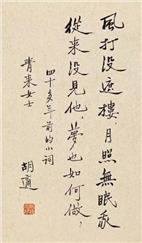 風打没遮樓,月照無眠我,
從来没見他,夢也如何做,
四十多年前的小詞
青来女士 胡適